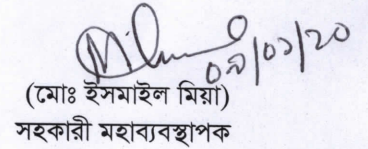 ০৯/০১/২০
(মোঃ ইসমাইল মিয়া)
সহকারী মহাব্যবস্থাপক